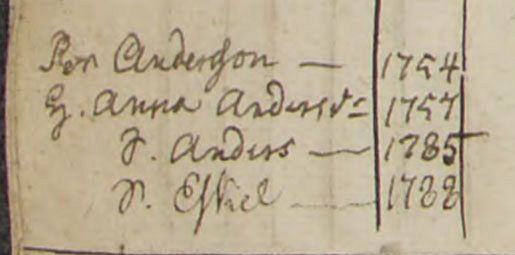 Per Anderson — 1754
H. Anna Andersd= 1757
S. Anders — 1785
S. Eskel — 1788